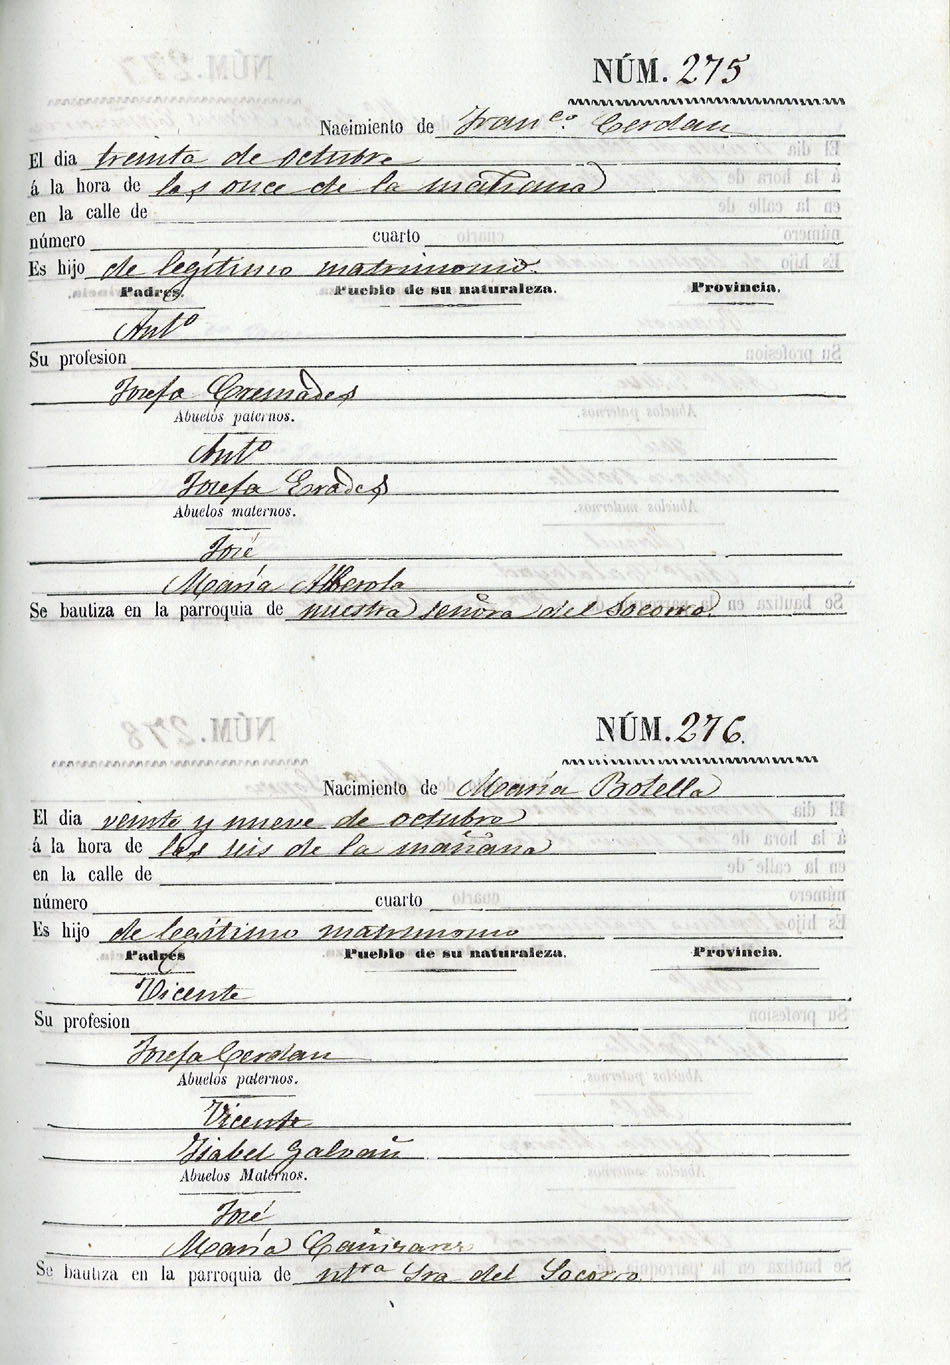 NÚM. 275
Nacimiento de Fran.co Cerdan
El dia treinta de octubre
á la hora de las once de la mañana
en la calle de
número cuarto
Es hijo de legítimo matrimonio.
Padres. Pueblo de su naturaleza. Provincia.
Anto
Su profesion
Josefa Cremades
Abuelos paternos.
Anto
Josefa Errades
Abuelos maternos.
José
María Alberola
Se bautiza en la parroquia de nuestra señora del Socorro.
NÚM. 276.
Nacimiento de María Botella
El dia veinte y nueve de octubre
á la hora de las seis de la mañana
en la calle de
número cuarto
Es hijo de legítimo matrimonio
Padres Pueblo de su naturaleza. Provincia.
Vicente
Su profesion
Josefa Cerdan
Abuelos paternos.
Vicente
Isabel Galvañ
Abuelos Maternos.
José
María Cañizares
Se bautiza en la parroquia de ntra Sra del Socorro.